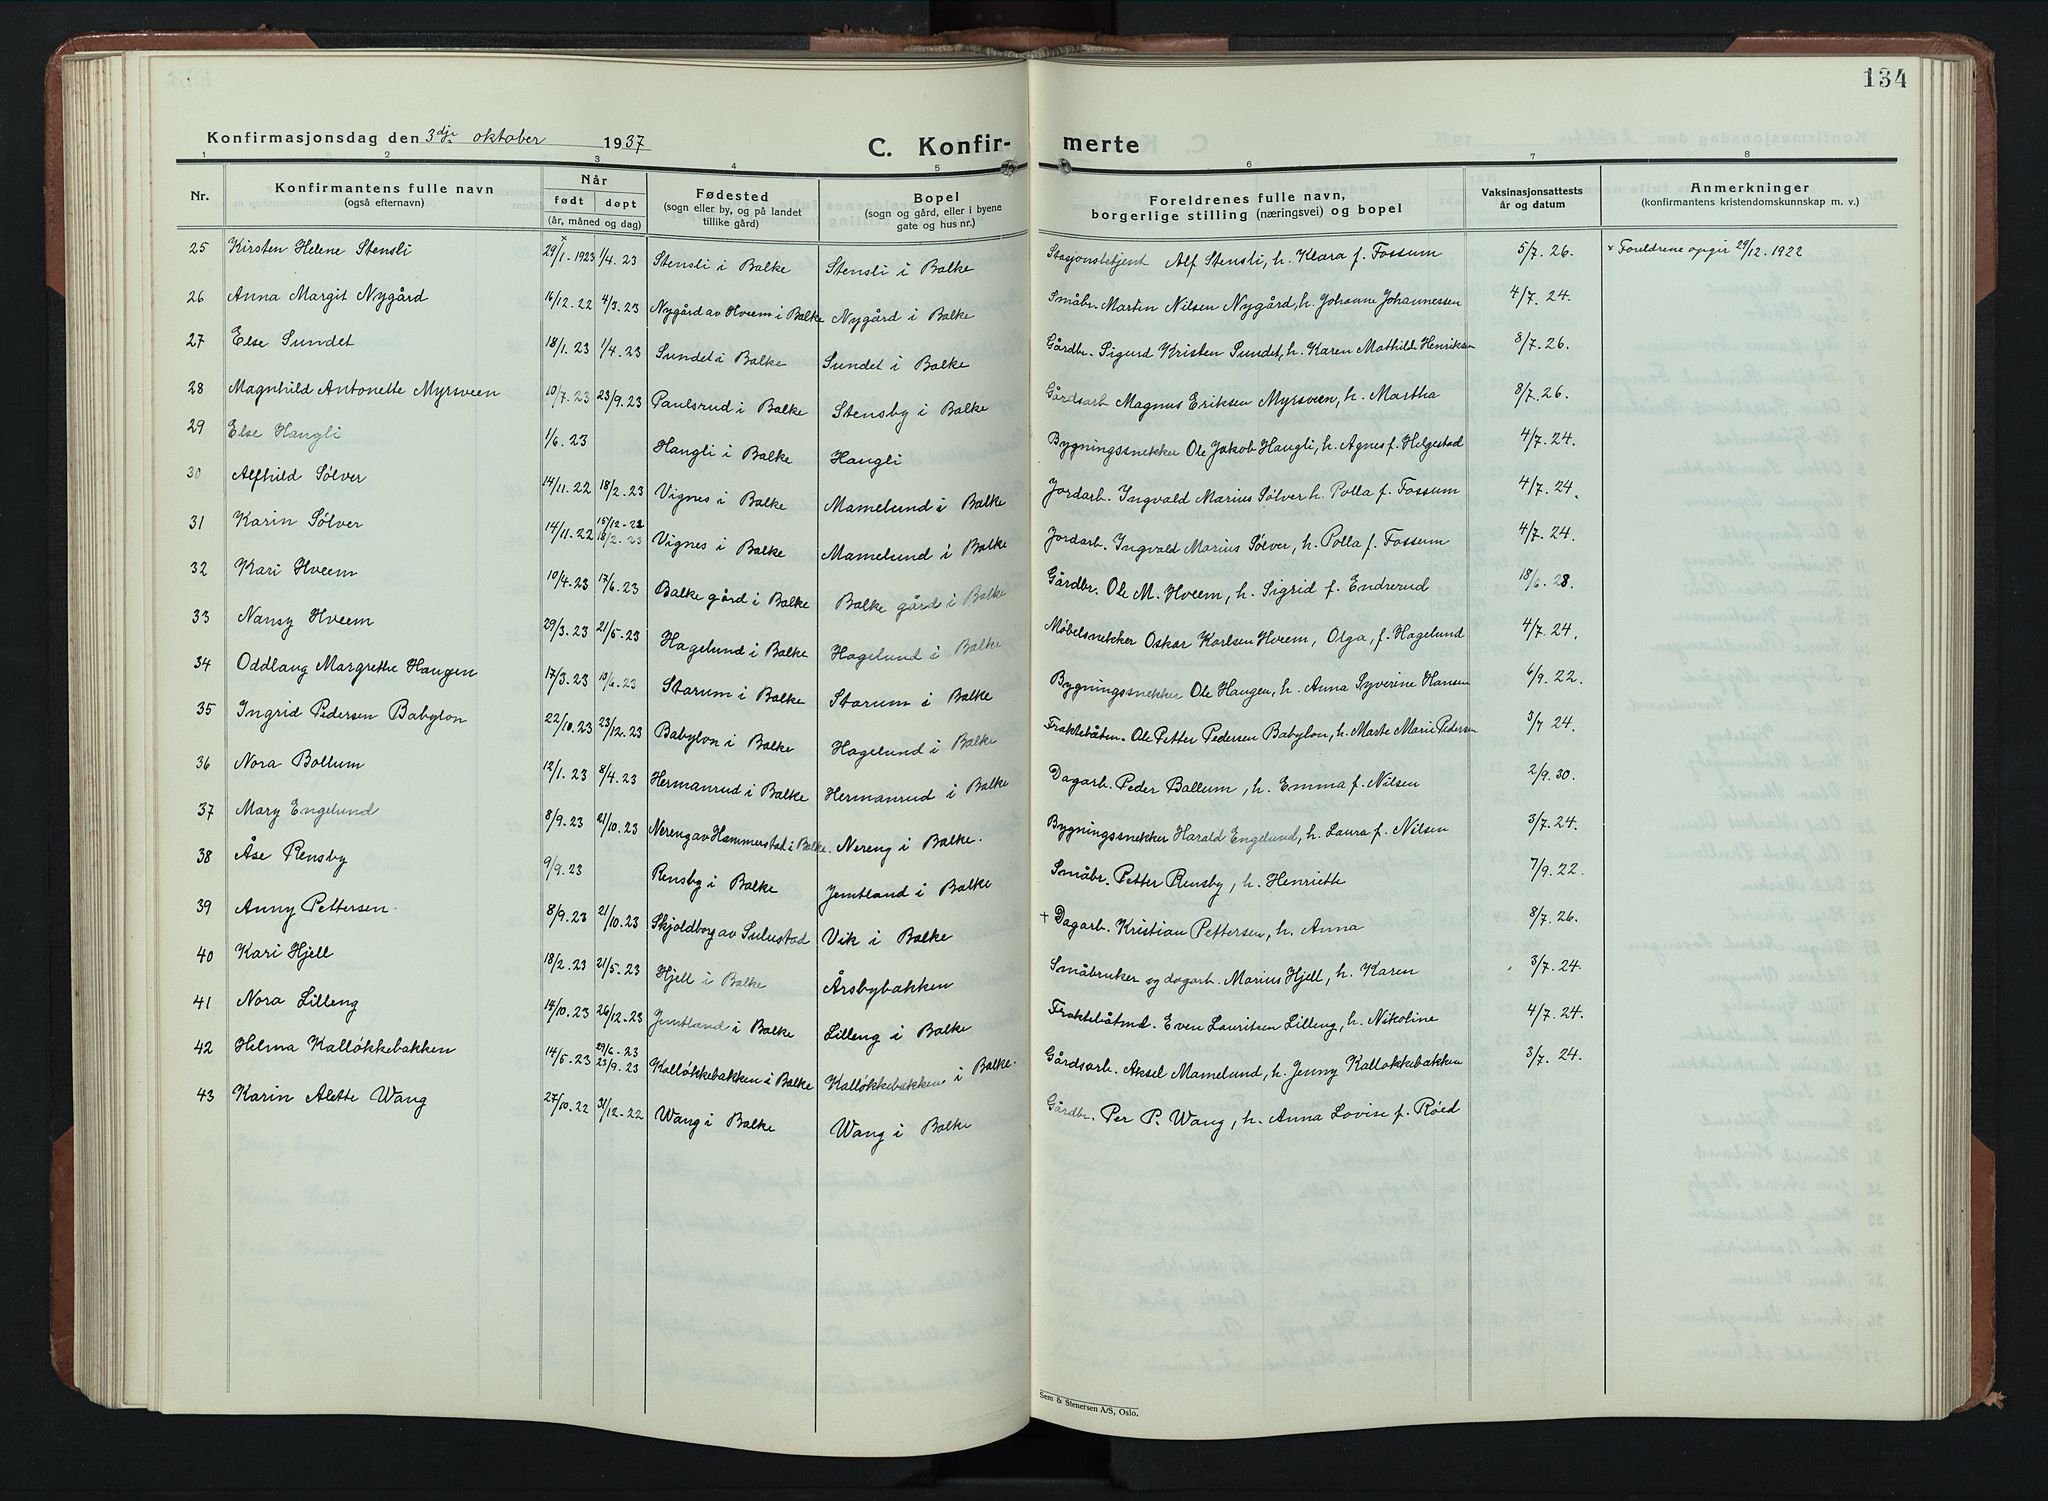 134
Konfirmasjonsdag den 3dje oktober 1937
C. Konfir- merte
1 2 3 4 5 6 7 8
Nr.
Konfirmantens fulle navn
(også efternavn)
Når
født døpt
(år, måned og dag)
Fødested
(sogn eller by, og på landet
tillike gård)
Bopel
(sogn og gård, eller i byene
gate og hus nr.)
Foreldrenes fulle navn,
borgerlige stilling (næringsvei) og bopel
Vaksinasjonsattests
år og datum
Anmerkninger
(konfirmantens kristendomskunnskap m. v.)
25 Kirsten Helene Stensli 29/1.1923 x 1/4.23 Stensli i Balke Stensli i Balke Stasjonsbetjent Alf Stensli, h. Klara f. Fossum 5/7.26. x Foreldrene opgir 29/12.1922
26 Anna Margit Nygård 16/12.22 4/3.23 Nygård av Hveem i Balke Nygård i Balke Småbr. Martin Nilsen Nygård, h. Johanne Johannessen 4/7.24.
27 Else Sundet 18/1.23 1/4.23 Sundet i Balke Sundet i Balke Gårdbr. Sigurd Kristen Sundet, h. Karen Mathilde Henriksen 8/7.26.
28 Magnhild Antonette Myrsveen 10/7.23 23/9.23 Paulsrud i Balke Stensby i Balke Gårdsarb. Magnus Eriksen Myrsveen, h. Martha 8/7.26.
29 Else Haugli 1/6.23 Haugli i Balke Haugli Bygningssnekker Ole Jakob Haugli, h. Agnes f. Helgestad 4/7.24.
30 Alfhild Sølver 14/11.22 18/2.23 Vignes i Balke Mamelund i Balke Jordarb. Ingvald Marius Sølver h. Polla f. Fossum 4/7.24.
31 Karin Sølver 14/11.22 15/12-22 18/2.23 Vignes i Balke Mamelund i Balke Jordarb. Ingvald Marius Sølver, h. Polla f. Fossum 4/7.24.
32 Kari Hveem 10/4.23 17/6.23 Balke gård i Balke Balke gård i Balke Gårdbr. Ole M. Hveem, h. Sigrid f. Endrerud 18/6.28.
33 Nansy Hveem 29/3.23 21/5.23 Hagelund i Balke Hagelund i Balke Møbelsnekker Oskar Karlsen Hveem, Olga, f. Hagelund 4/7.24.
34 Oddlaug Margrethe Haugen 17/3.23 10/6.23 Starum i Balke Starum i Balke Bygningssnekker Ole Haugen, h. Anna Syverine Hansen 6/9.22.
35 Ingrid Pedersen Babylon 22/10.23 23/12.23 Babylon i Balke Hagelund i Balke Fraktebåtm. Ole Petter Pedersen Babylon, h. Marte Marie Pedersen 3/7 24.
36 Nora Bollum 12/1.23 8/4.23 Hermanrud i Balke Hermanrud i Balke Dagarb. Peder Ballum, h. Emma f. Nilsen 2/9.30.
37 Mary Engelund 8/9.23 21/10.23 Nereng av Hammerstad i Balke. Nereng i Balke. Bygningssnekker Harald Engelund, h. Laura f. Nilsen 3/7.24.
38 Åse Rensby 9/9.23 Rensby i Balke Jemtland i Balke Småbr. Petter Rensby, h. Henriette 7/9.22.
39 Anny Pettersen. 8/9.23 21/10.23 Skjoldborg av Sulustad Vik i Balke + Dagarb. Kristian Pettersen, h. Anna 8/7.26.
40 Kari Hjell 18/2.23 21/5.23 Hjell i Balke Årsbybakken Småbruker og dagarb. Marius Hjell, h. Karen 3/7.24.
41 Nora Lilleng 14/10.23 26/12-23 Jemtland i Balke Lilleng i Balke Fraktebåtmd. Even Lauritsen Lilleng, h. Nikoline 4/7.24.
42 Helma Kalløkkebakken 14/5.23 29/6-23 23/9.23 Kalløkkebakken i Balke Kalløkkebakken i Balke. Gårdsarb. Aksel Mamelund, h. Jenny Kalløkkebakken 3/7.24.
43 Karin Alette Wang 27/10.22 31/12-22 Wang i Balke Wang i Balke Gårdbr. Per P. Wang, h. Anna Lovise f. Røed
Sem & Stenersen A/S, Oslo.